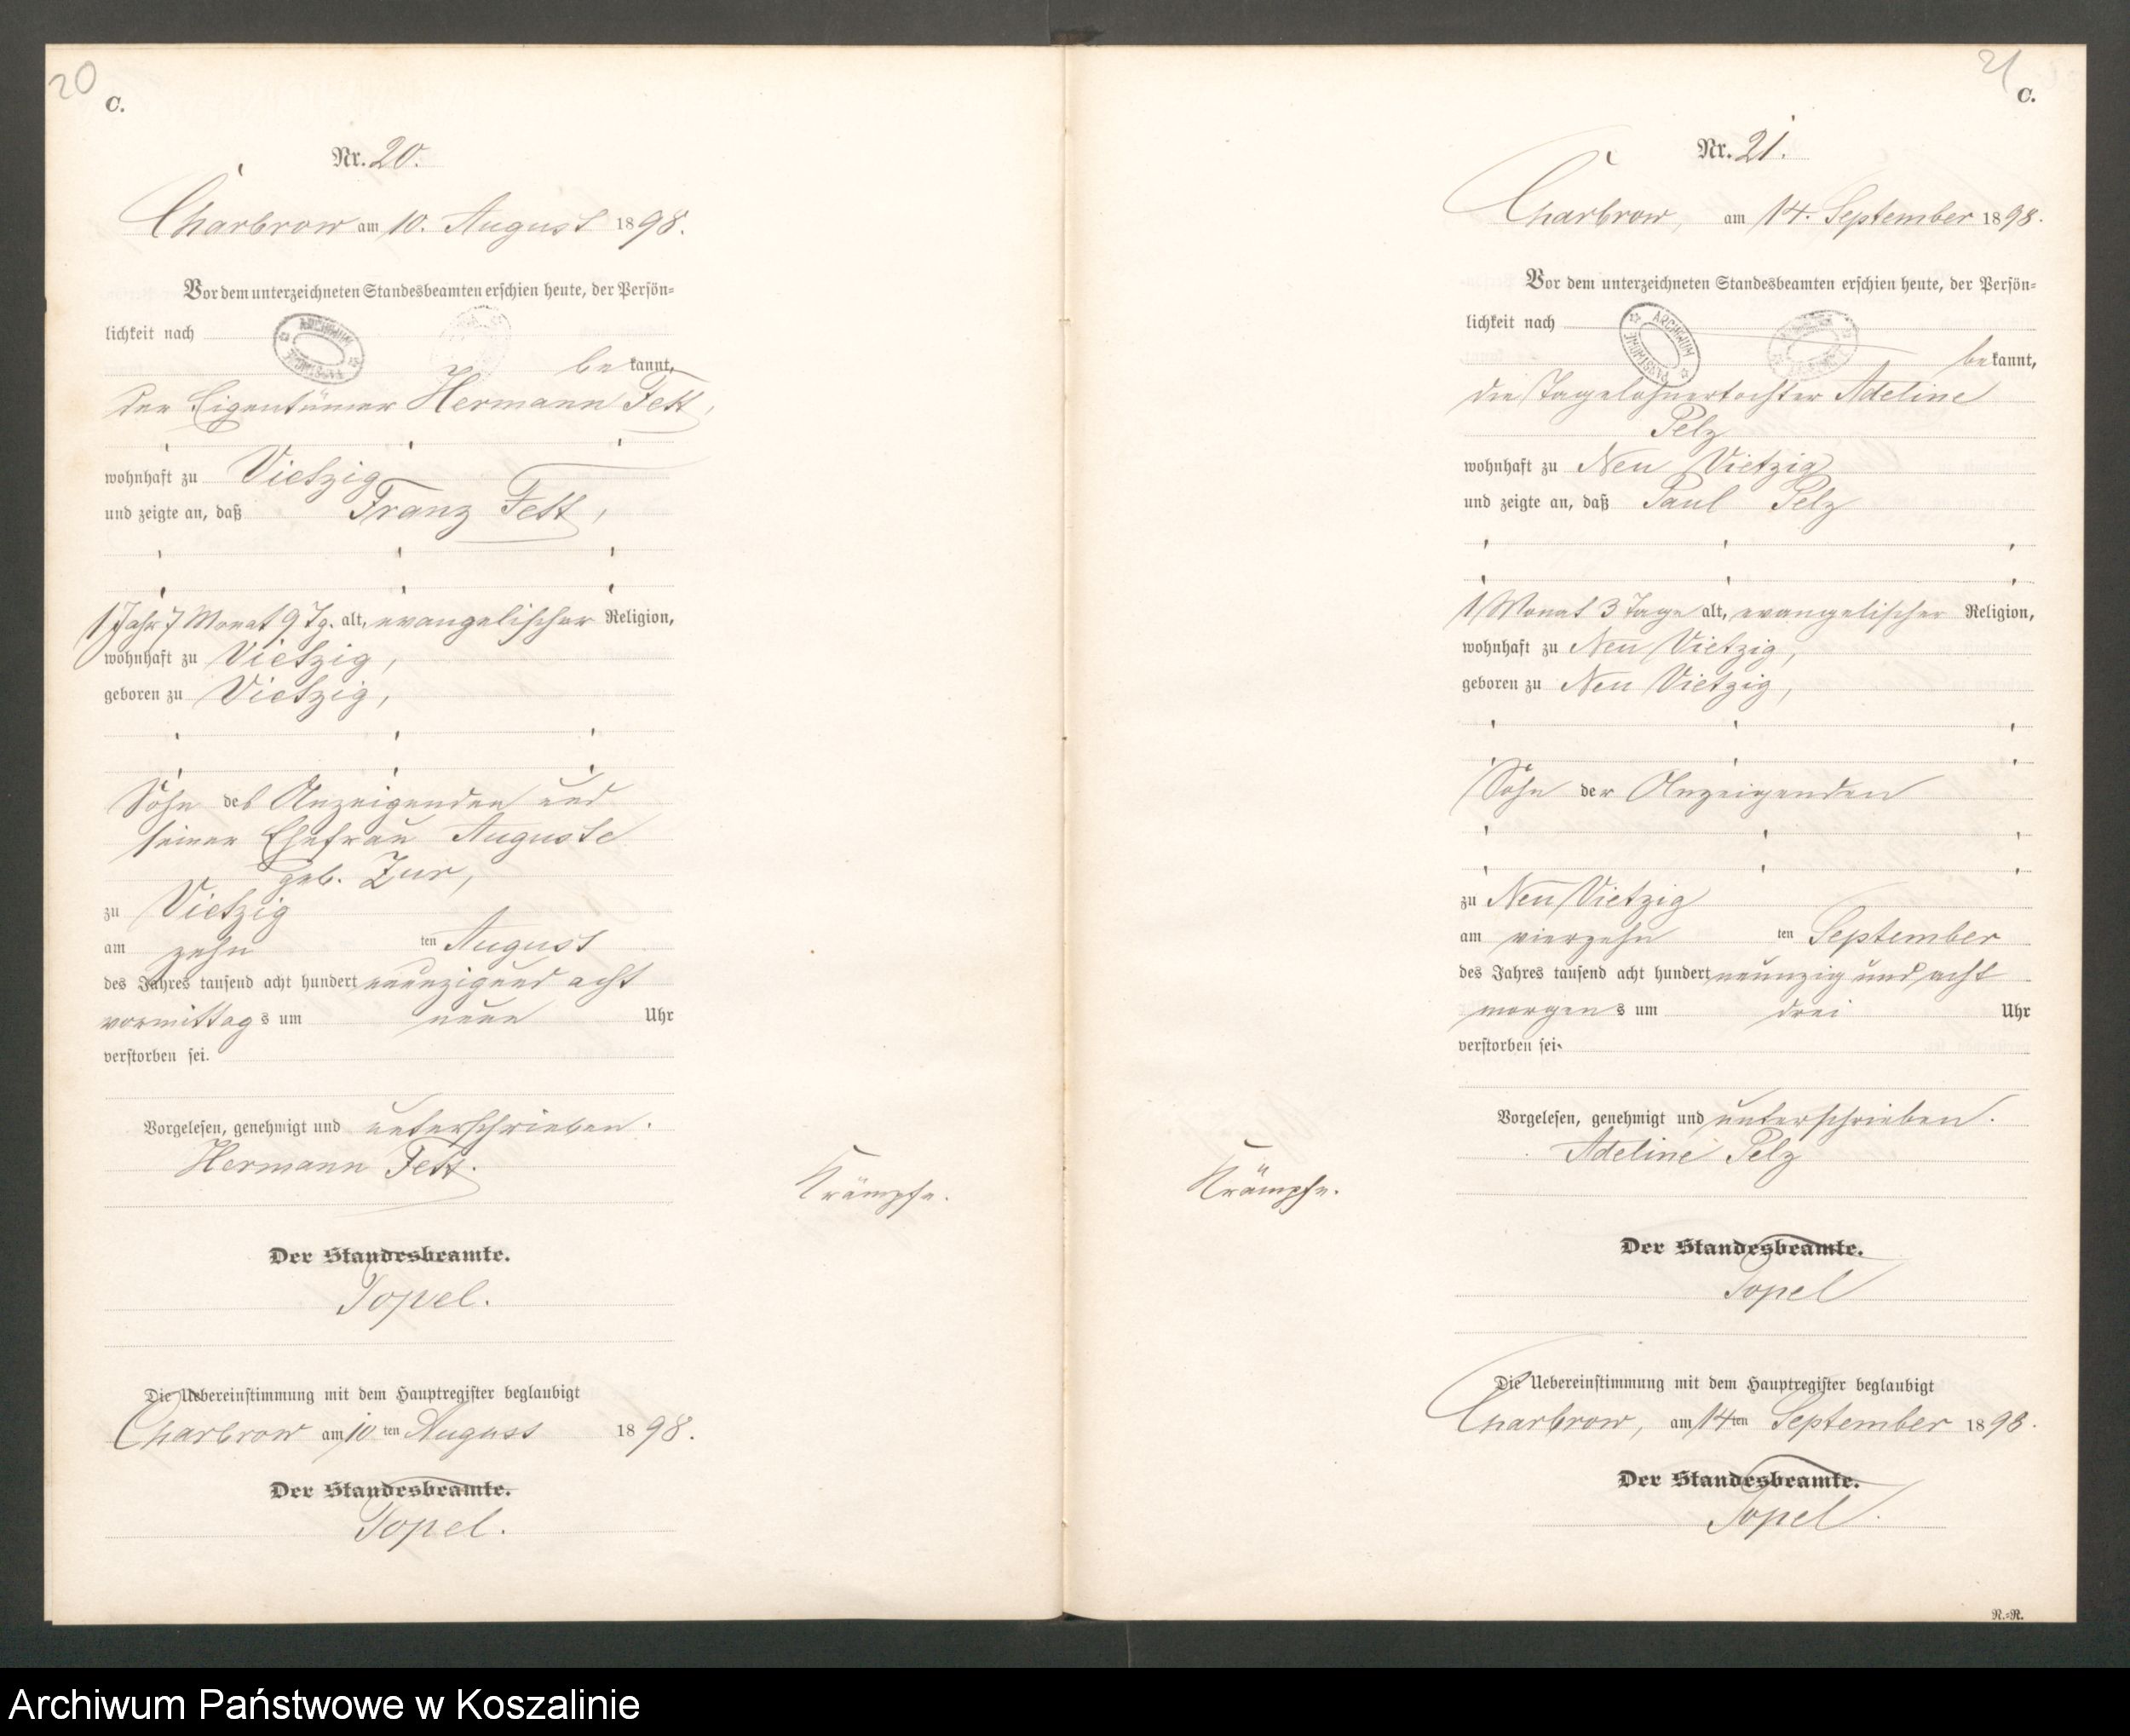 20
C.
Nr. 20.
Charbrow am 10. August 1898.
Vor dem unterzeichneten Standesbeamten erschien heute, der Persön=
lichkeit nach
ARCHIWUM PAŃSTWOWE
be kannt,
der Eigentümer Hermann Fett,
wohnhaft zu Vietzig
und zeigte an, daß Franz Fett,
1 Jahr 7 Monat 9 Tg. alt, evangelischer Religion,
wohnhaft zu Vietzig,
geboren zu Vietzig,
Sohn des Anzeigenden und
seiner Ehefrau Auguste
geb. Zur,
zu Vietzig
am zehn ten August
des Jahres tausend acht hundert neunzig und acht
vormittag s um neun Uhr
verstorben sei.
Vorgelesen, genehmigt und unterschrieben.
Hermann Fett.
Krämpfe.
Der Standesbeamte.
Topel.
Die Uebereinstimmung mit dem Hauptregister beglaubigt
Charbrow am 10 ten August 1898.
Der Standesbeamte.
Topel.
21
C.
Nr. 21.
Charbrow, am 14. September 1898.
Vor dem unterzeichneten Standesbeamten erschien heute, der Persön=
lichkeit nach
ARCHIWUM PAŃSTWOWE
be kannt,
die Tagelohnertochter Adeline
Pelz
wohnhaft zu Neu Vietzig
und zeigte an, daß Paul Pelz
1 Monat 3 Tage alt, evangelischer Religion,
wohnhaft zu Neu Vietzig,
geboren zu Neu Vietzig,
Sohn der Anzeigenden
zu Neu Vietzig
am vierzehn ten September
des Jahres tausend acht hundert neunzig und acht
morgen s um drei Uhr
verstorben sei.
Vorgelesen, genehmigt und unterschrieben.
Adeline Pelz
Krämpfe.
Der Standesbeamte.
Topel
Die Uebereinstimmung mit dem Hauptregister beglaubigt
Charbrow, am 14 ten September 1898.
Der Standesbeamte.
Topel.
R.=R.
Archiwum Państwowe w Koszalinie